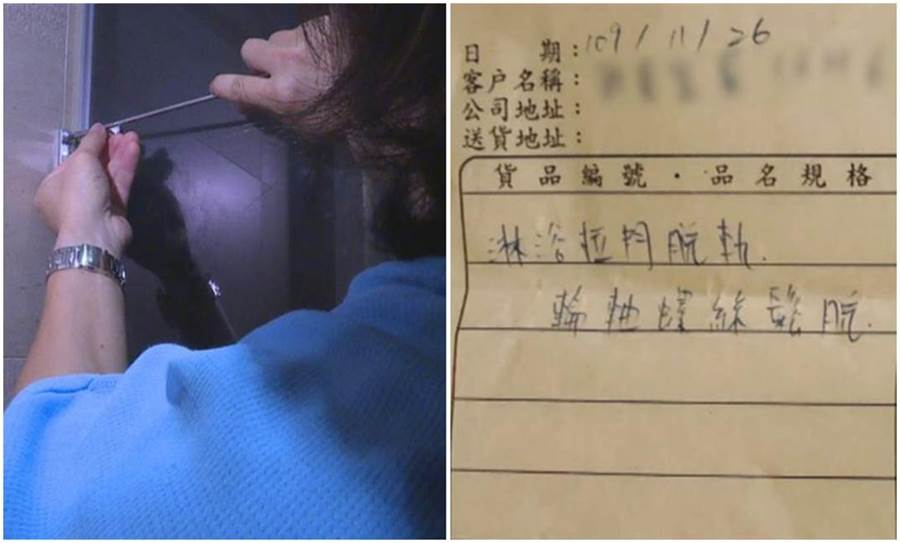 日 期：109/11/26
客戶名稱：
公司地址：
送貨地址：
貨品編號．品名規格
淋浴拉門脫軌.
輪軸螺絲鬆脫.